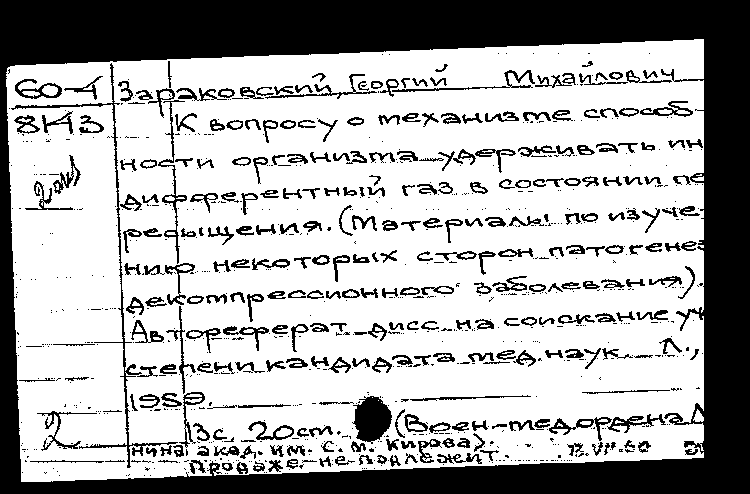 60-4 Зараковский, Георгий Михайлович
8143 К вопросу о механизме способ-
ности организма удерживать ин
дифферентный газ в состоянии пе
ресыщения. (Материалы по изуче-
нию некоторых сторон патогенез
декомпрессионного заболевания).
Автореферат дисс. на соискание уч
степени кандидата мед. наук Л.,
1959.
2 13с. 20см. (Воен.-мед. ордена Л
нина акад. им. С. М. Кирова).
Продаже не подлежит.